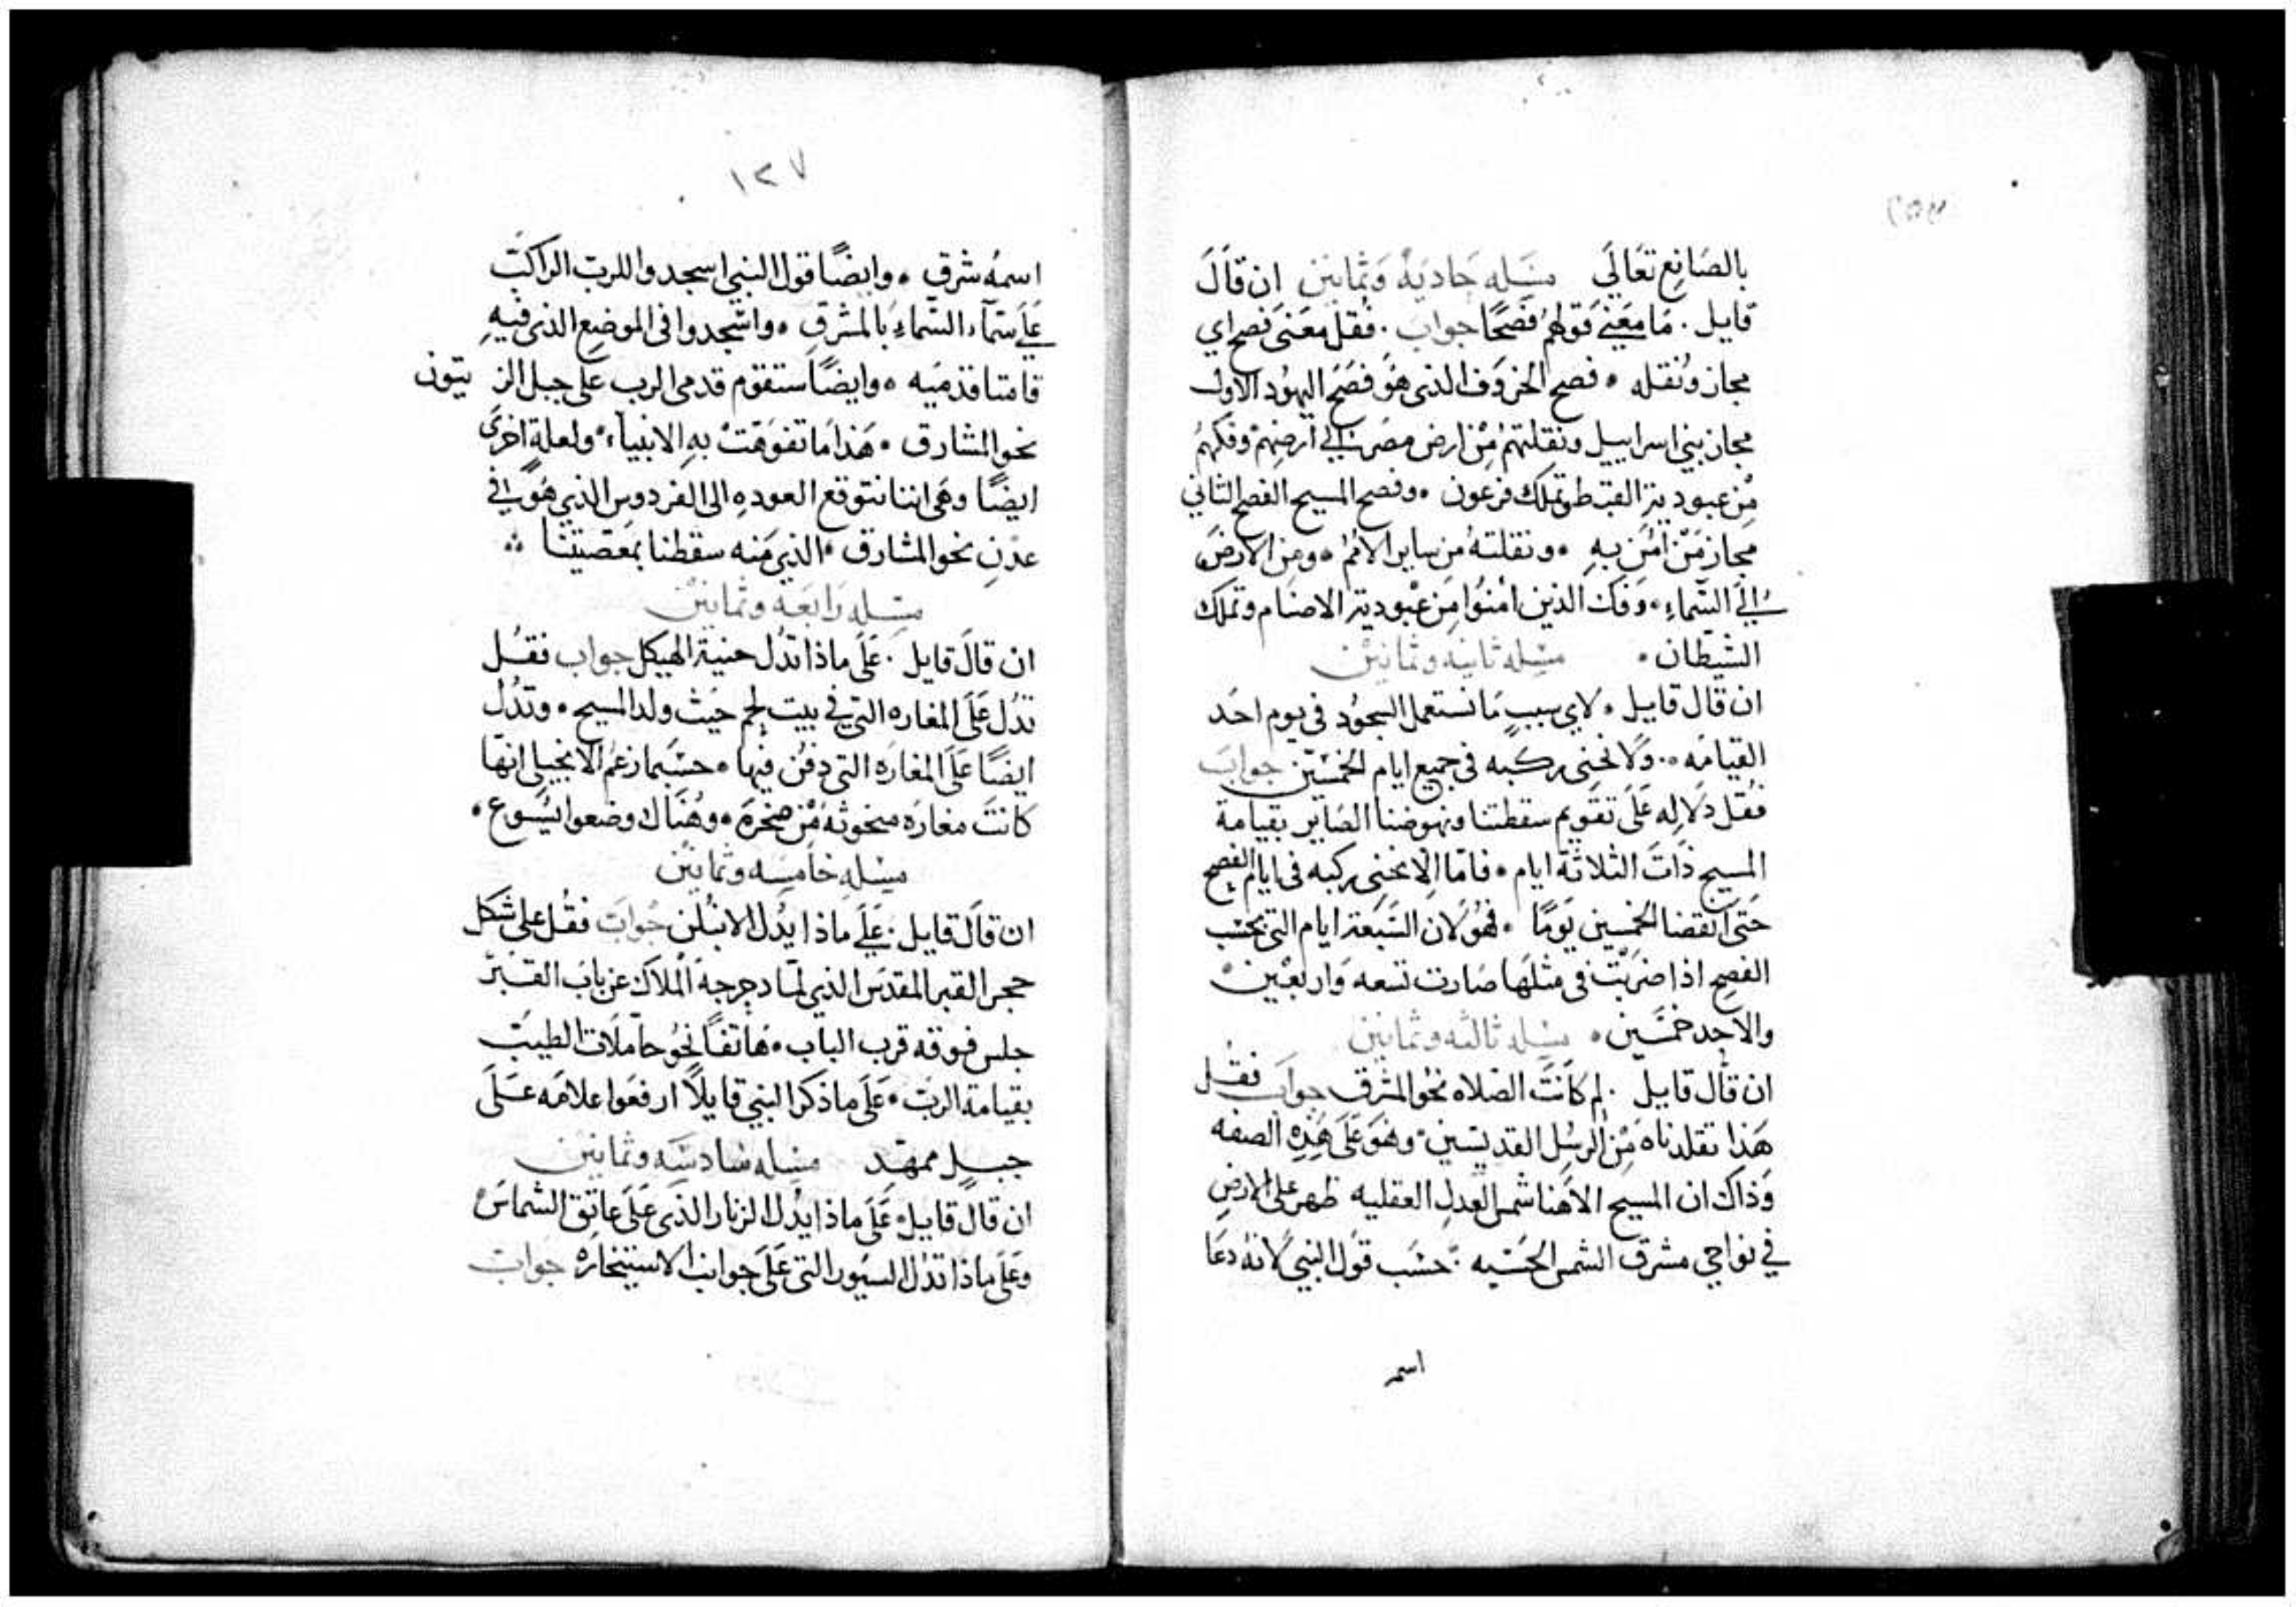 بالصَانِع تعَالَي مسَله حَاديَة وَثمانين ان قالَ
قايل . مَا معَني قولهمُ فصحًا جوابَ . فقل معَنى فصح اي
مجاز ونقله ٠ فصح الخروَف الذى هوَ فصَحَ اليهوُد الاول
مجاز بني اسراييل ونقلتهمُ مِن ارض مصَر الي ارضِهمْ وفكهمُ
مِن عبودية القبط وتملك فرعون ٠ وفصح المسيح الفصح الثاني
مجاز مَن امَن بهِ ٠ ونقلتهُ من ساير الامُم ٠ ومن الارضَ
الَي السّماءِ ٠ وَفكَ الذين امنوُا مِن عبودية الاصنام وتملك
الشيَطان ٠ مسَله ثانيه وثمانين
ان قال قاييل ٠ لاي سببٍ مَا نستعمل السجوُد في يوم احَد
القيامَه ٠٠ وَلا نحني ركبه في جميع ايام الخمسَين جوابَ
فقل دلَاله عَلَى تقويم سقطتنا ونهوضنا الصَاير بقيامة
المسيح ذَات الثلاثة ايام ٠ فامّا الا نحني ركبه في ايام الفصح
حَتي انقضا الخمسين يوَمًا ٠ فهوُ لان السَبعة ايام التي بحسَب
الفصح اذا ضرَبت في مثلهَا صَارت تسعه وَاربعَين
والاحد خمسَين ٠ مسَله ثالثه وثمانين
ان قال قاييل . لم كانَتَ الصَلاه نحوُ المشرق جوابَ فقل
هَذا تقلدناهَ مِن الرسُل القديسَين ٠ وهوَ عَلَى هَذِهِ الصفه
وَذاكَ ان المسيح الاهنا شمس العَدل العقليه ظهر على الارضِ
في نواحي مشرق الشمس الحَسيه ٠ حسَب قول النبي لانهُ دعَا
اسمـ
١٢٧
اسمهُ شرق ٠ وايضًا قول النبي اسجدوا للرب الراكبَ
عَلَي سَمآء السّماءِ بالمشرق ٠ واسَجدوا في الموضِع الذى فيهِ
قامتا قدمَيه ٠ وايضًا ستقوم قدمي الرب على جبل الزيتون
نحو المشارق ٠ هَذا مَا تفوَهَتْ بهِ الانبيآء ٠ ولعلةٍ اخرَى
ايضًا وهَي اننا نتوقع العودهِ الى الفردوس الذي هوَ في
عدْنِ نحو المشارق ٠ الذي مَنه سقطنا بمعصَيتنا ٠
مسَله رَابعَه وثمانينْ
ان قالَ قايل . عَلَى ماذا تدُل حنية الهيكل جواب فقـل
تدُل عَلَى المغاره التي في بيت لحم حيَث ولد المسيح ٠ وتدُل
ايضًا عَلَى المغارَه التي دفنُ فيها ٠ حسَبما زعَم الانجيلي انهّا
كانتَ مغارَه منحوثهَ مِن صَخرَة ٠ وهُنَاك وضعوا يسَوع ٠
مسَله خامسَه وثمانين
ان قالَ قايل . عَلَي ماذا يدُل الانبُلن جُوابَ فقل على شكل
حجر القبر المقدسَ الذي لمَا دحرجهَ الملاك عن باب القـبر
جلس فوقه قرب الباب ٠ هَاتفًا نحوُ حاملَات الطيبَ
بقيامة الربَ ٠ عَلَى ما ذكر النبي قايلًا ارفعَوا علامَه عـلَى
جبـلٍ ممهّد مسَله سَادسَه وثمانين
ان قالَ قايل ٠ عَلَى ماذا يدُل الزنار الذَى عَلَى عاتق الشماسَ
وعَلَى ماذا تدُل السيَور التي عَلَى جوانب الاستيخارهَ جوابَ